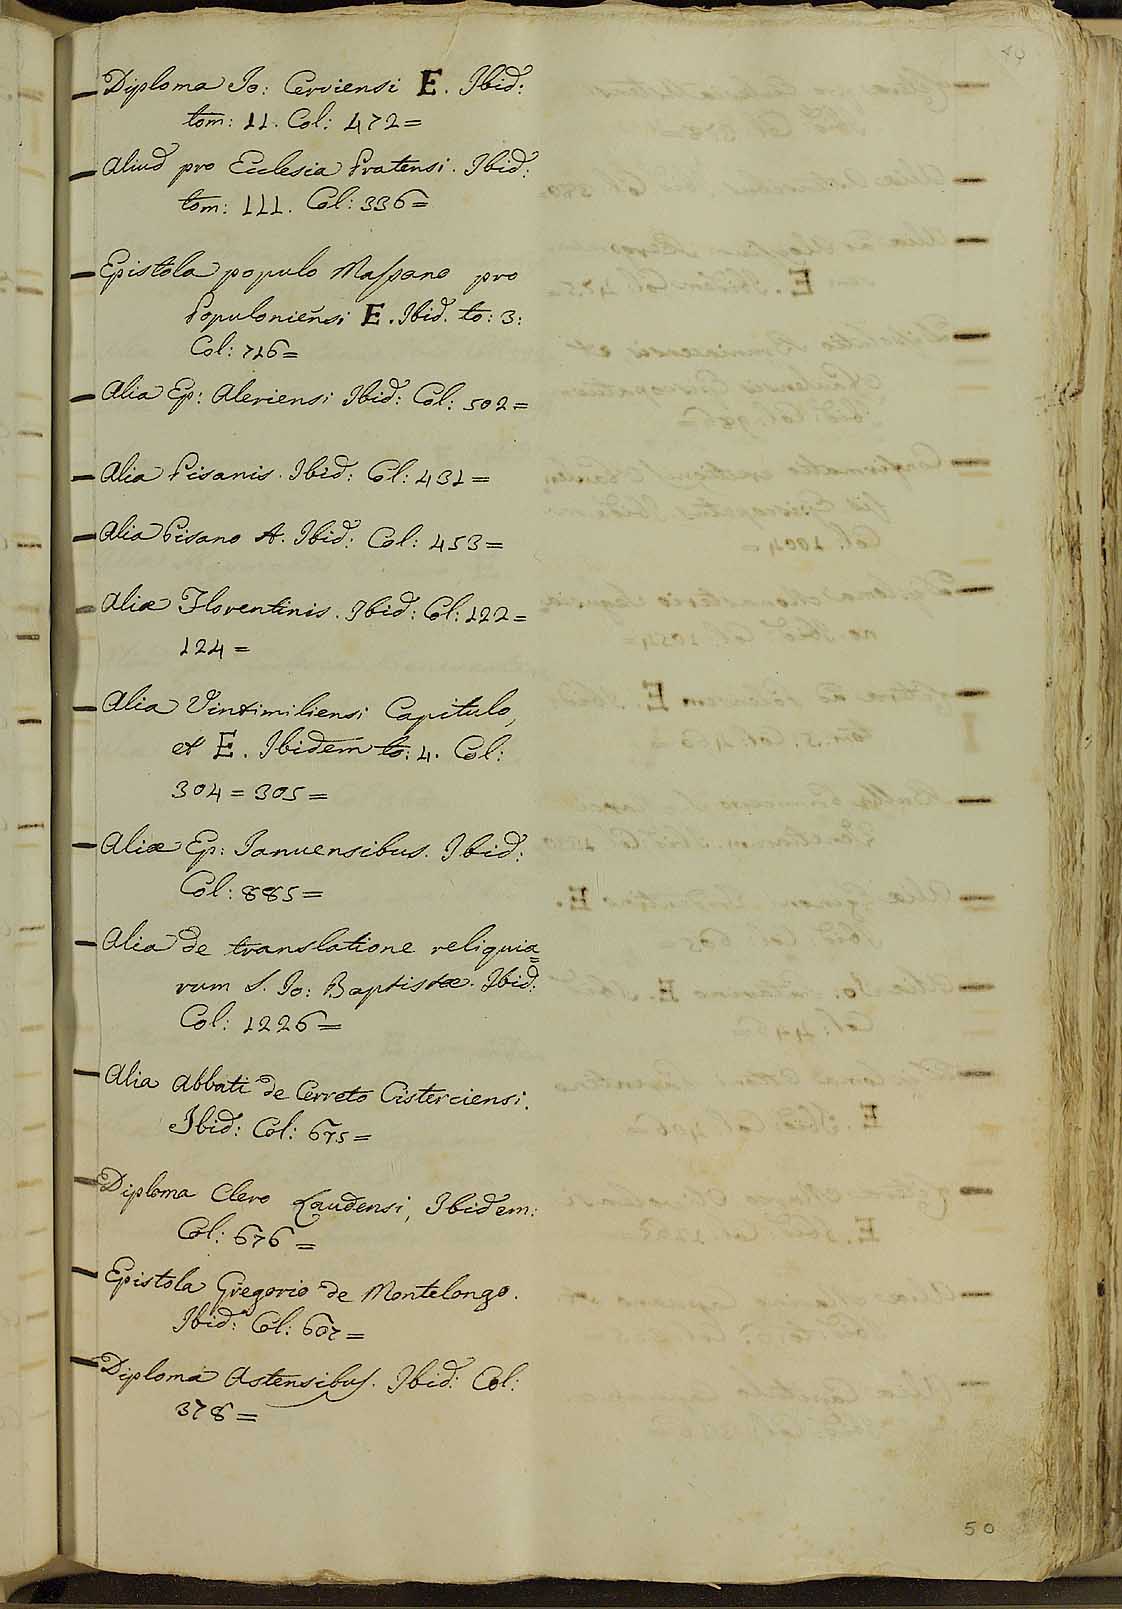 Diploma Jo: Cerviensi E. Ibid:
tom: 11. Col: 472=
Aliud pro Ecclesia Pratensi. Ibid:
tom: 111. Col: 336=
Epistola populo Massano pro
Populoniensi E. Ibid. to: 3:
Col: 716=
Alia Ep: Aleriensi Ibid: Col: 502=
Alia Pisanis. Ibid: Col: 431=
Alia Pisano A. Ibid: Col: 453=
Aliæ Florentinis. Ibid: Col: 122=
124=
Alia Vintimiliensi Capitulo,
et E. Ibidem to: 4. Col:
304=305=
Aliæ Ep: Januensibus. Ibid:
Col: 885=
Alia de translatione reliquia=
rum S. Jo: Baptistæ. Ibid.
Col: 1226=
Alia Abbati de Cerreto Cisterciensi.
Ibid: Col: 675=
Diploma Clero Laudensi, Ibidem:
Col: 676=
Epistola Gregorio de Montelongo.
Ibid: Col: 607=
Diploma Astensibus. Ibid: Col:
378=
50